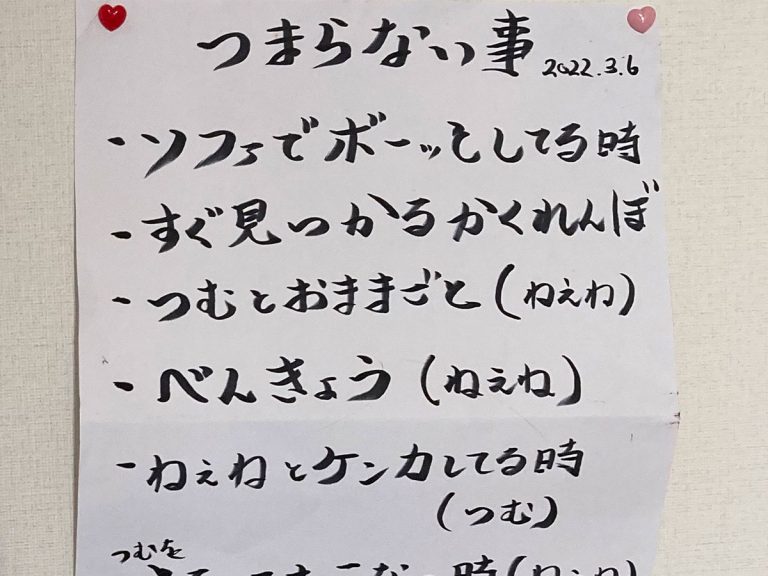 つまらない事 2022.3.6
- ソファでボーッとしてる時
- すぐ見つかるかくれんぼ
- つむとおままごと(ねえね)
- べんきょう(ねえね)
- ねえねとケンカしてる時
(つむ)
つむを
時(ねえね)